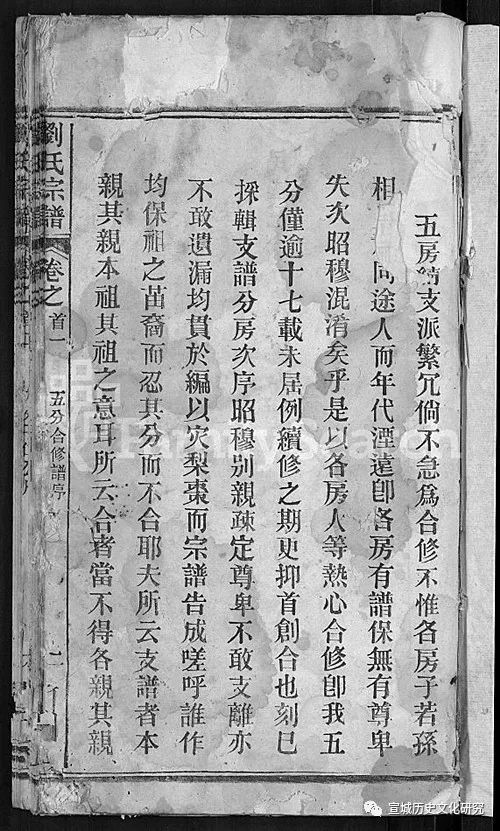 五房 支派繁冗倘不急為合修不惟各房子若孫
相 同途人而年代湮遠卽各房有譜保無有尊卑
失次昭穆混淆矣乎是以各房人等熱心合修卽我五
分僅逾十七載未屆例續修之期更抑首創合也刻巳
採輯支譜分房次序昭穆別親疎定尊卑不敢支離亦
不敢遺漏均貫於編以灾梨棗而宗譜告成嗟呼誰作
均保祖之苗裔而忍其分而不合耶夫所云支譜者本
親其親本祖其祖之意耳所云合者當不得各親其親
劉氏宗譜 卷之首一 五分合修譜序 二
FamilySearch
宣城历史文化研究